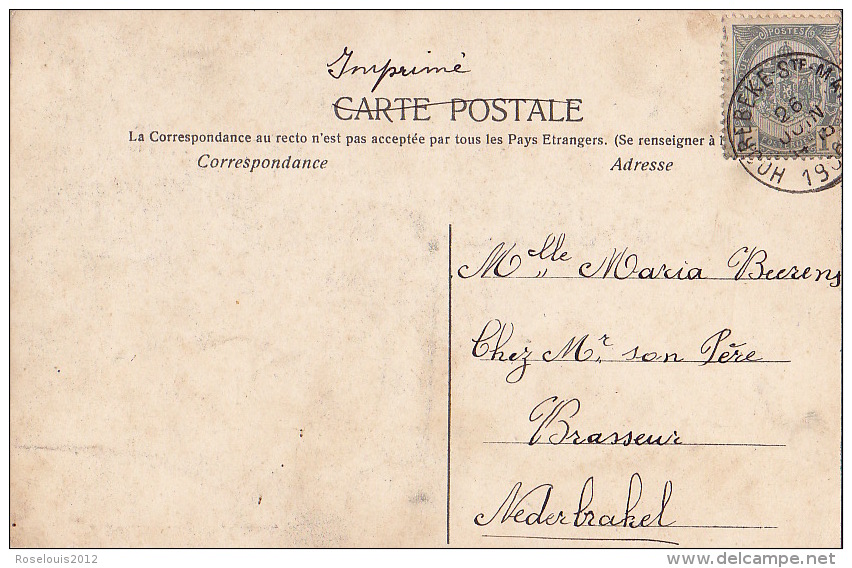 Imprimé
CARTE POSTALE
La Correspondance au recto n'est pas acceptée par tous les Pays Etrangers. (Se renseigner à l
Correspondance
Adresse
POSTES
HOOREBEKE-STE-MA
26
JUIN
Mlle Maria Beerens
Chez Mr son Père
Brasseur
Nederbrakel
Roselouis2012
www.delcampe.net